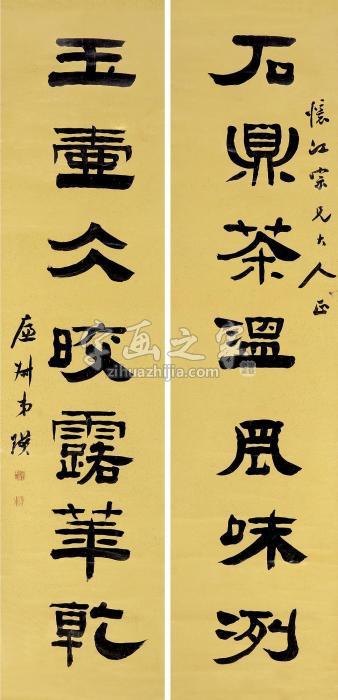 石鼎茶溫風味冽
懷江宗兄大人正
玉壺仌晈露華乾
弟
字画之家
zihuazhijia.com